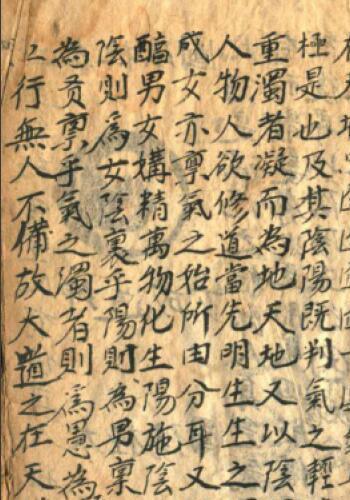 極是也及其陰陽既判氣之輕
重濁者凝而為地天地又以陰
人物人欲修道當先明生生之
成女亦稟氣之始所由分耳又
醕男女媾精萬物化生陽施陰
陰則爲女陰裏乎陽則為男稟
為稟乎氣之濁者則爲愚為
行無人不備故大道之在天